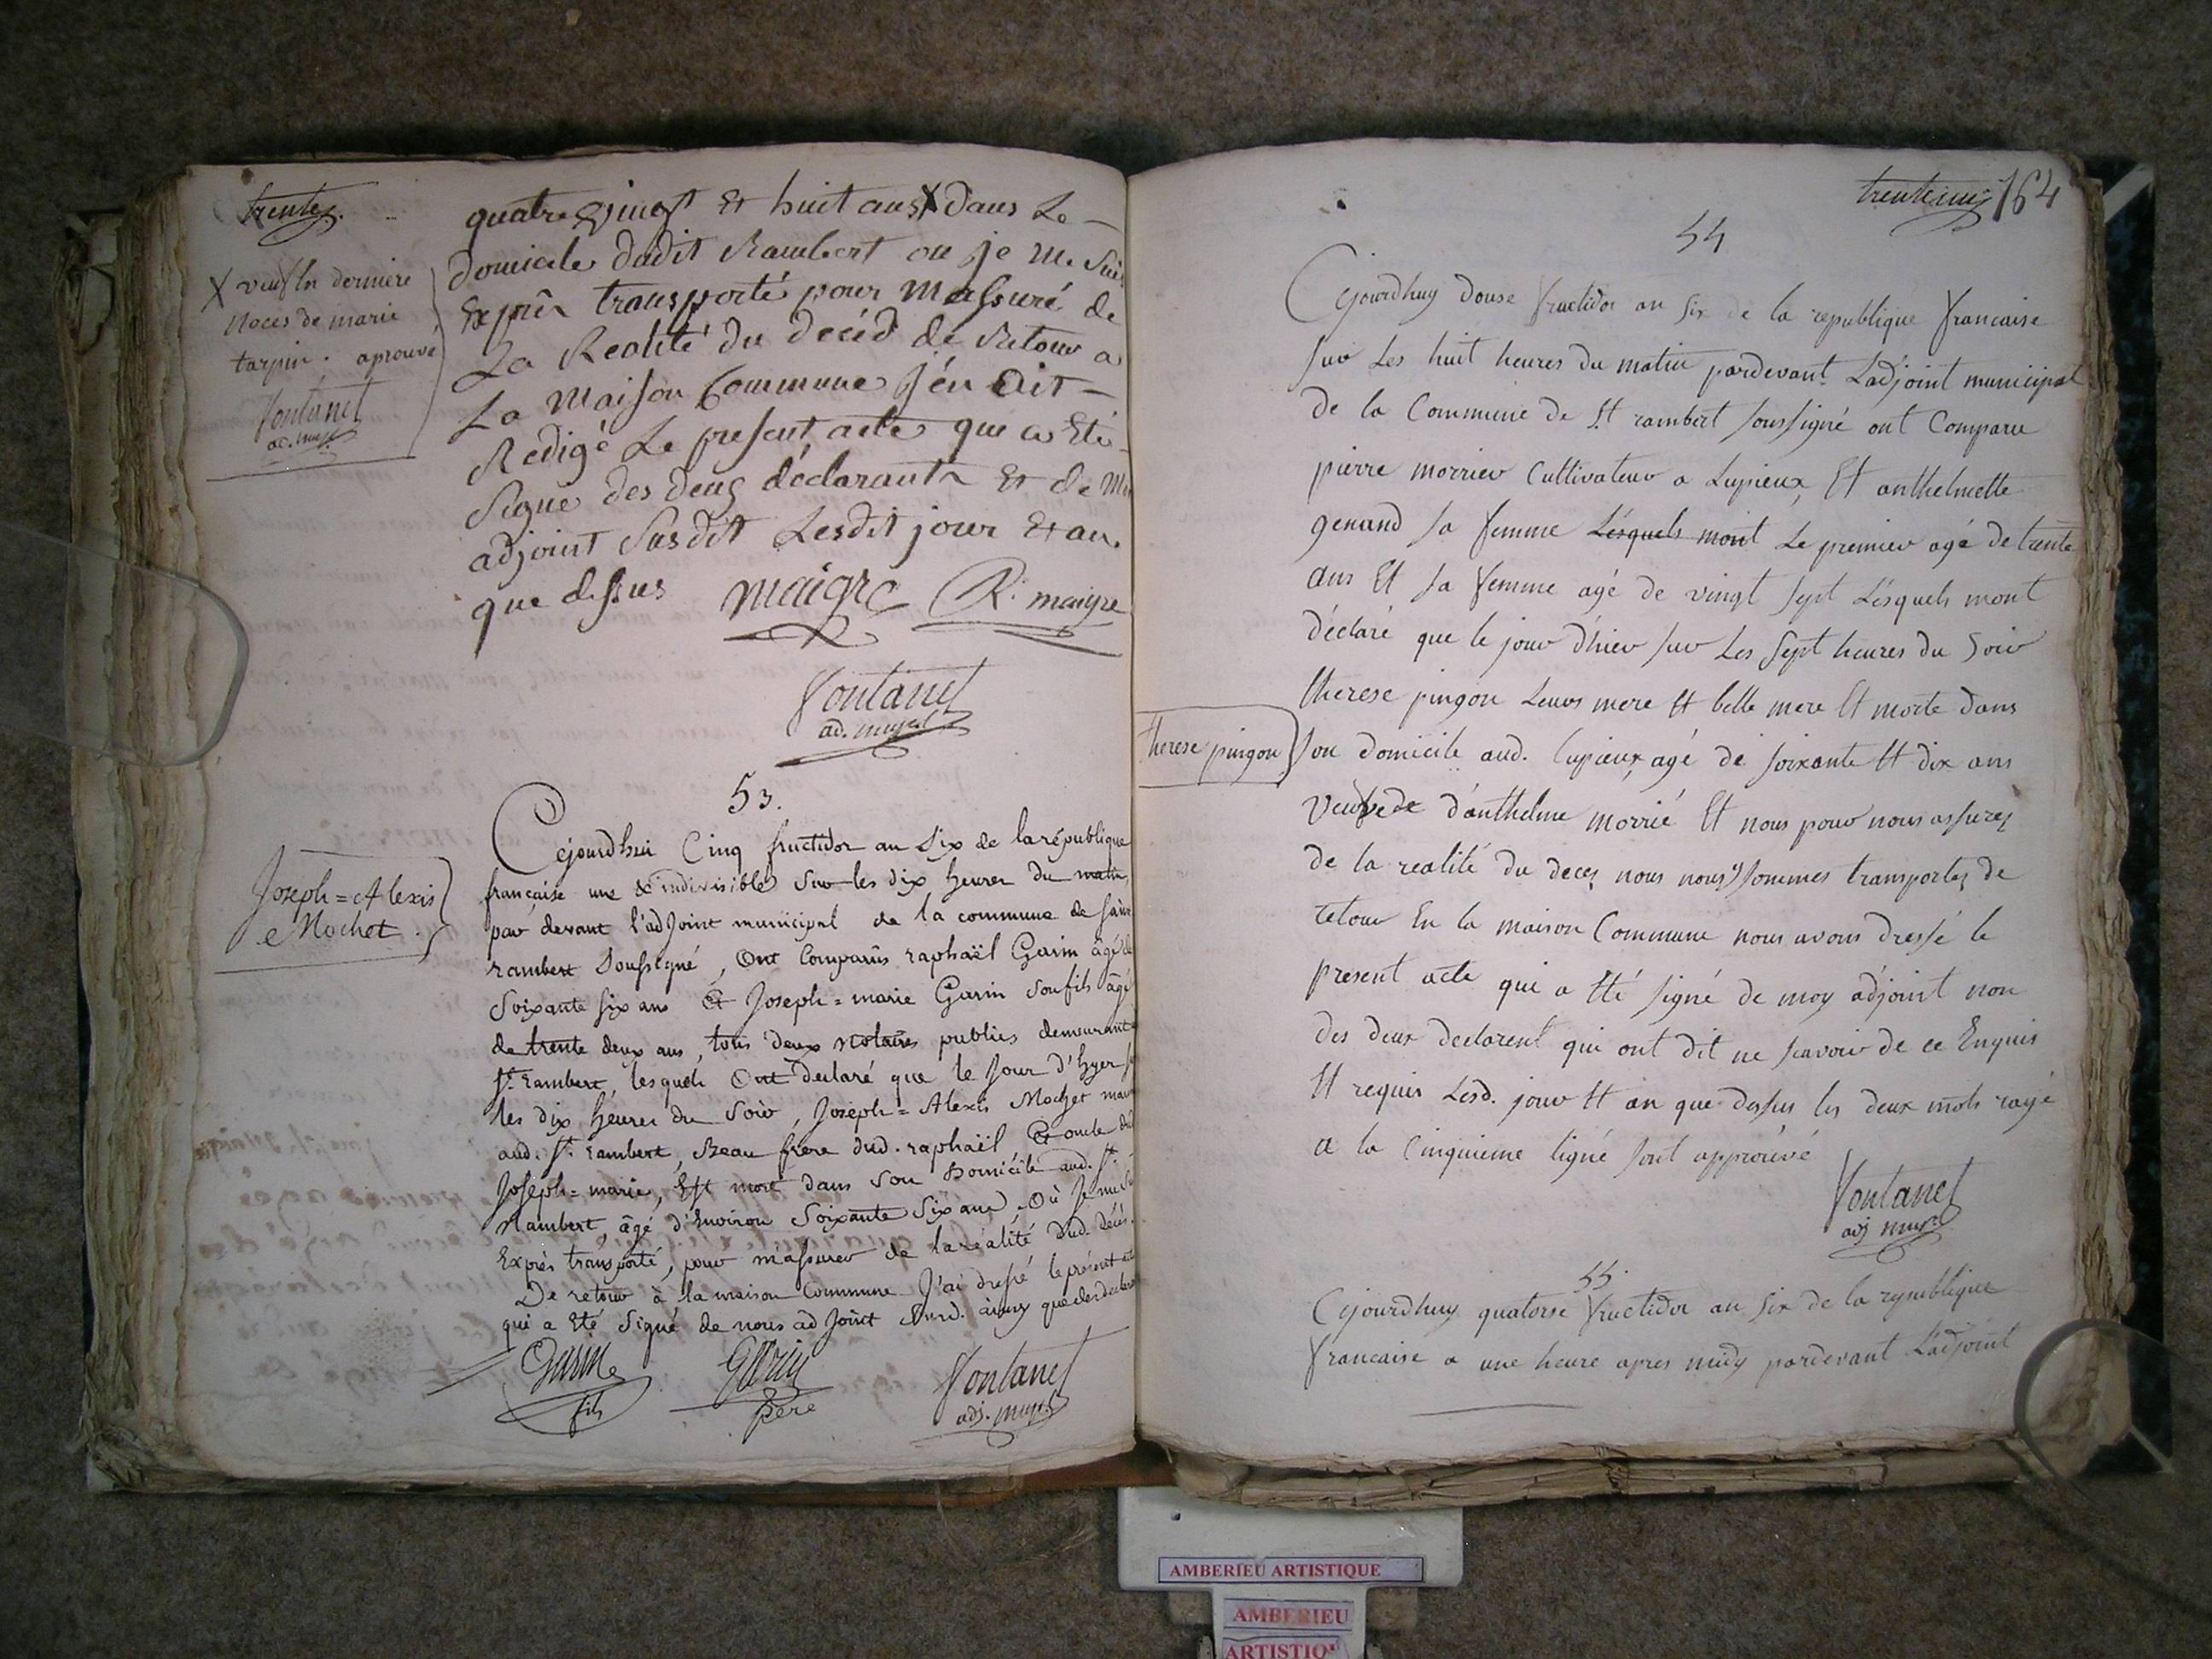 trente
X veuf En derniere
noces de marie
tarpin. aprouvé
fontanel
ad. mupal
quatre Vingt Et huit ans X dans Le
domicile dudit Rambert ou je me Suis
Exprès transporté pour Massuré de
La Realité du décéd de Retour a
La Maison Commune J'en Ait
Redigé Le present acte que a Eté
Signé des deux déclarants Et de Moi
adjoint Susdit Lesdit jour Et an
que dessus maigre R. maigre
fontanel
ad. mupal
53.
Joseph=Alexis
Mochet.
Cejourd'hui Cinq fructidor an Six de la république
française une & indivisible Sur les dix heures du matin,
par devant l'adjoint municipal de la commune de Saint
rambert Soussigné, Ont Comparus raphaël Garin âgé de
Soixante Six ans Et Joseph=marie Garin Son fils âgé
de trente deux ans, tous deux notaires publics demeurant
St. rambert, lesquels Ont déclaré que le Jour d'hyer
les dix heures du Soir, Joseph=Alexis Mochet
aud. St. rambert, Beau frere dud. raphaël Et oncle
Joseph=marie, Est mort dans Son Domicile aud. St.
Rambert, âgé d'Environ Soixante Six ans, Où Je me
Exprès transporté, pour m'assurer de la réalité dud. décès.
De retour à la maison Commune J'ai dressé le présent
qui a Eté Signé de nous adjoint Susd. ainsy que des
Garin Garin fontanel
fils pere adj. mupal
trente un 164
54
Cejourdhuy douse fructidor an Six de la republique francaise
Sur Les huit heures du matin pardevant Ladjoint municipal
de la Commune de St rambert Soussigné ont Comparu
pierre morrier Cultivateur a Lupieux Et anthelmette
genand Sa femme Lésquels mont Le premier agé de trente
ans Et Sa femme agé de vingt Sept Lésquels mont
déclaré que le jour d'hier Sur Les Sept heures du Soir
therese pingon Leurs mere Et belle mere Et morte dans
therese pingon
Son domicile aud. lupieux agé de Soixante Et dix ans
Veufve de d'anthelme morrié Et nous pour nous assurez
de la realité du decez nous nous Sommes transportez de
retour En la maison Commune nous avons dressé le
present acte qui a Eté Signé de moy adjoint non
des deux declarent qui ont dit ne Scavoir de ce Enquis
Et requis Lesd. jour Et an que dessus les deux mots rayé
a la Cinquieme ligne Sont approuvé
fontanel
adj mupal
55.
Cejourdhuy quatorse fructidor an Six de la republique
francaise a une heure apres midy pardevant Ladjoint
AMBERIEU ARTISTIQUE
AMBERIEU
ARTISTIQ